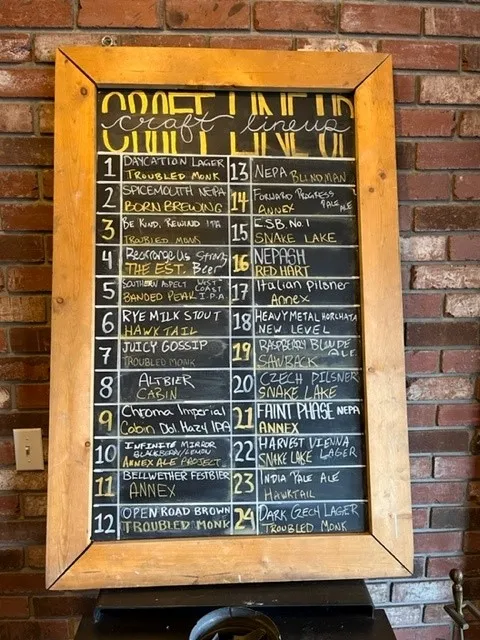 CRAFT LINE UP
craft lineup
1 DAYCATION LAGER
TROUBLED MONK
2 SPICEMOUTH NEPA
BORN BREWING
3 BE KIND, REWIND IPA
TROUBLED MONK
4 Rearrange Us Strong
THE EST. Beer
5 SOUTHERN ASPECT WEST COAST
BANDED PEAK I.P.A
6 RYE MILK STOUT
HAWK TAIL
7 JUICY GOSSIP
TROUBLED MONK
8 ALTBIER
CABIN
9 Chroma Imperial
Cabin Dbl. Hazy IPA
10 INFINITE MIRROR
BLACKBERRY/LEMON
ANNEX ALE PROJECT
11 BELLWETHER FESTBIER
ANNEX
12 OPEN ROAD BROWN
TROUBLED MONK
13 NEPA BLINDMAN
14 FORWARD PROGRESS
ANNEX PALE ALE
15 ESB. No. 1
SNAKE LAKE
16 NEPAGH
RED HART
17 Italian Pilsner
Annex
18 HEAVY METAL HORCHATA
NEW LEVEL
19 RASPBERRY BLONDE
SAWBACK ALE
20 CZECH PILSNER
SNAKE LAKE
21 FAINT PHASE NEPA
ANNEX
22 HARVEST VIENNA
SNAKE LAKE LAGER
23 INDIA PALE ALE
HAWKTAIL
24 DARK CZECH LAGER
TROUBLED MONK